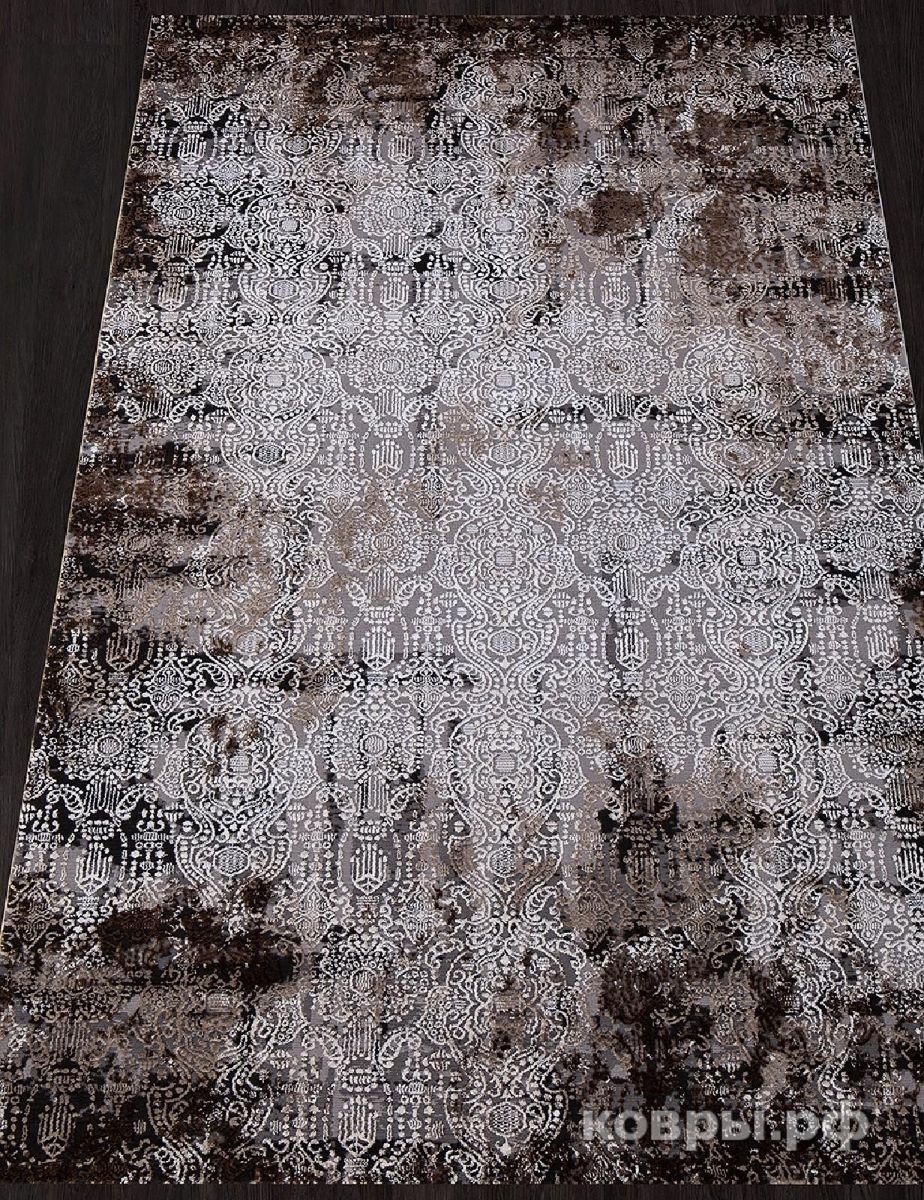 ковры.рф